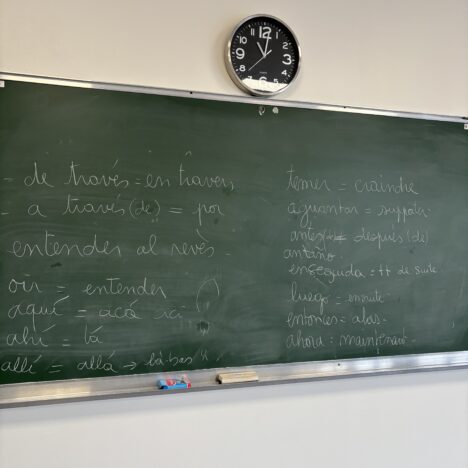 - de través = en travers
- a través (de) = por
entender al revès.
oir = entender
aquí = acá ici
ahí = là
allí = allá → là-bas
temer = craindre
aguantar = supporter
antes ≠ después (de)
antaño
enseguida = tt de suite
luego = ensuite
entonces = alors
ahora = maintenant